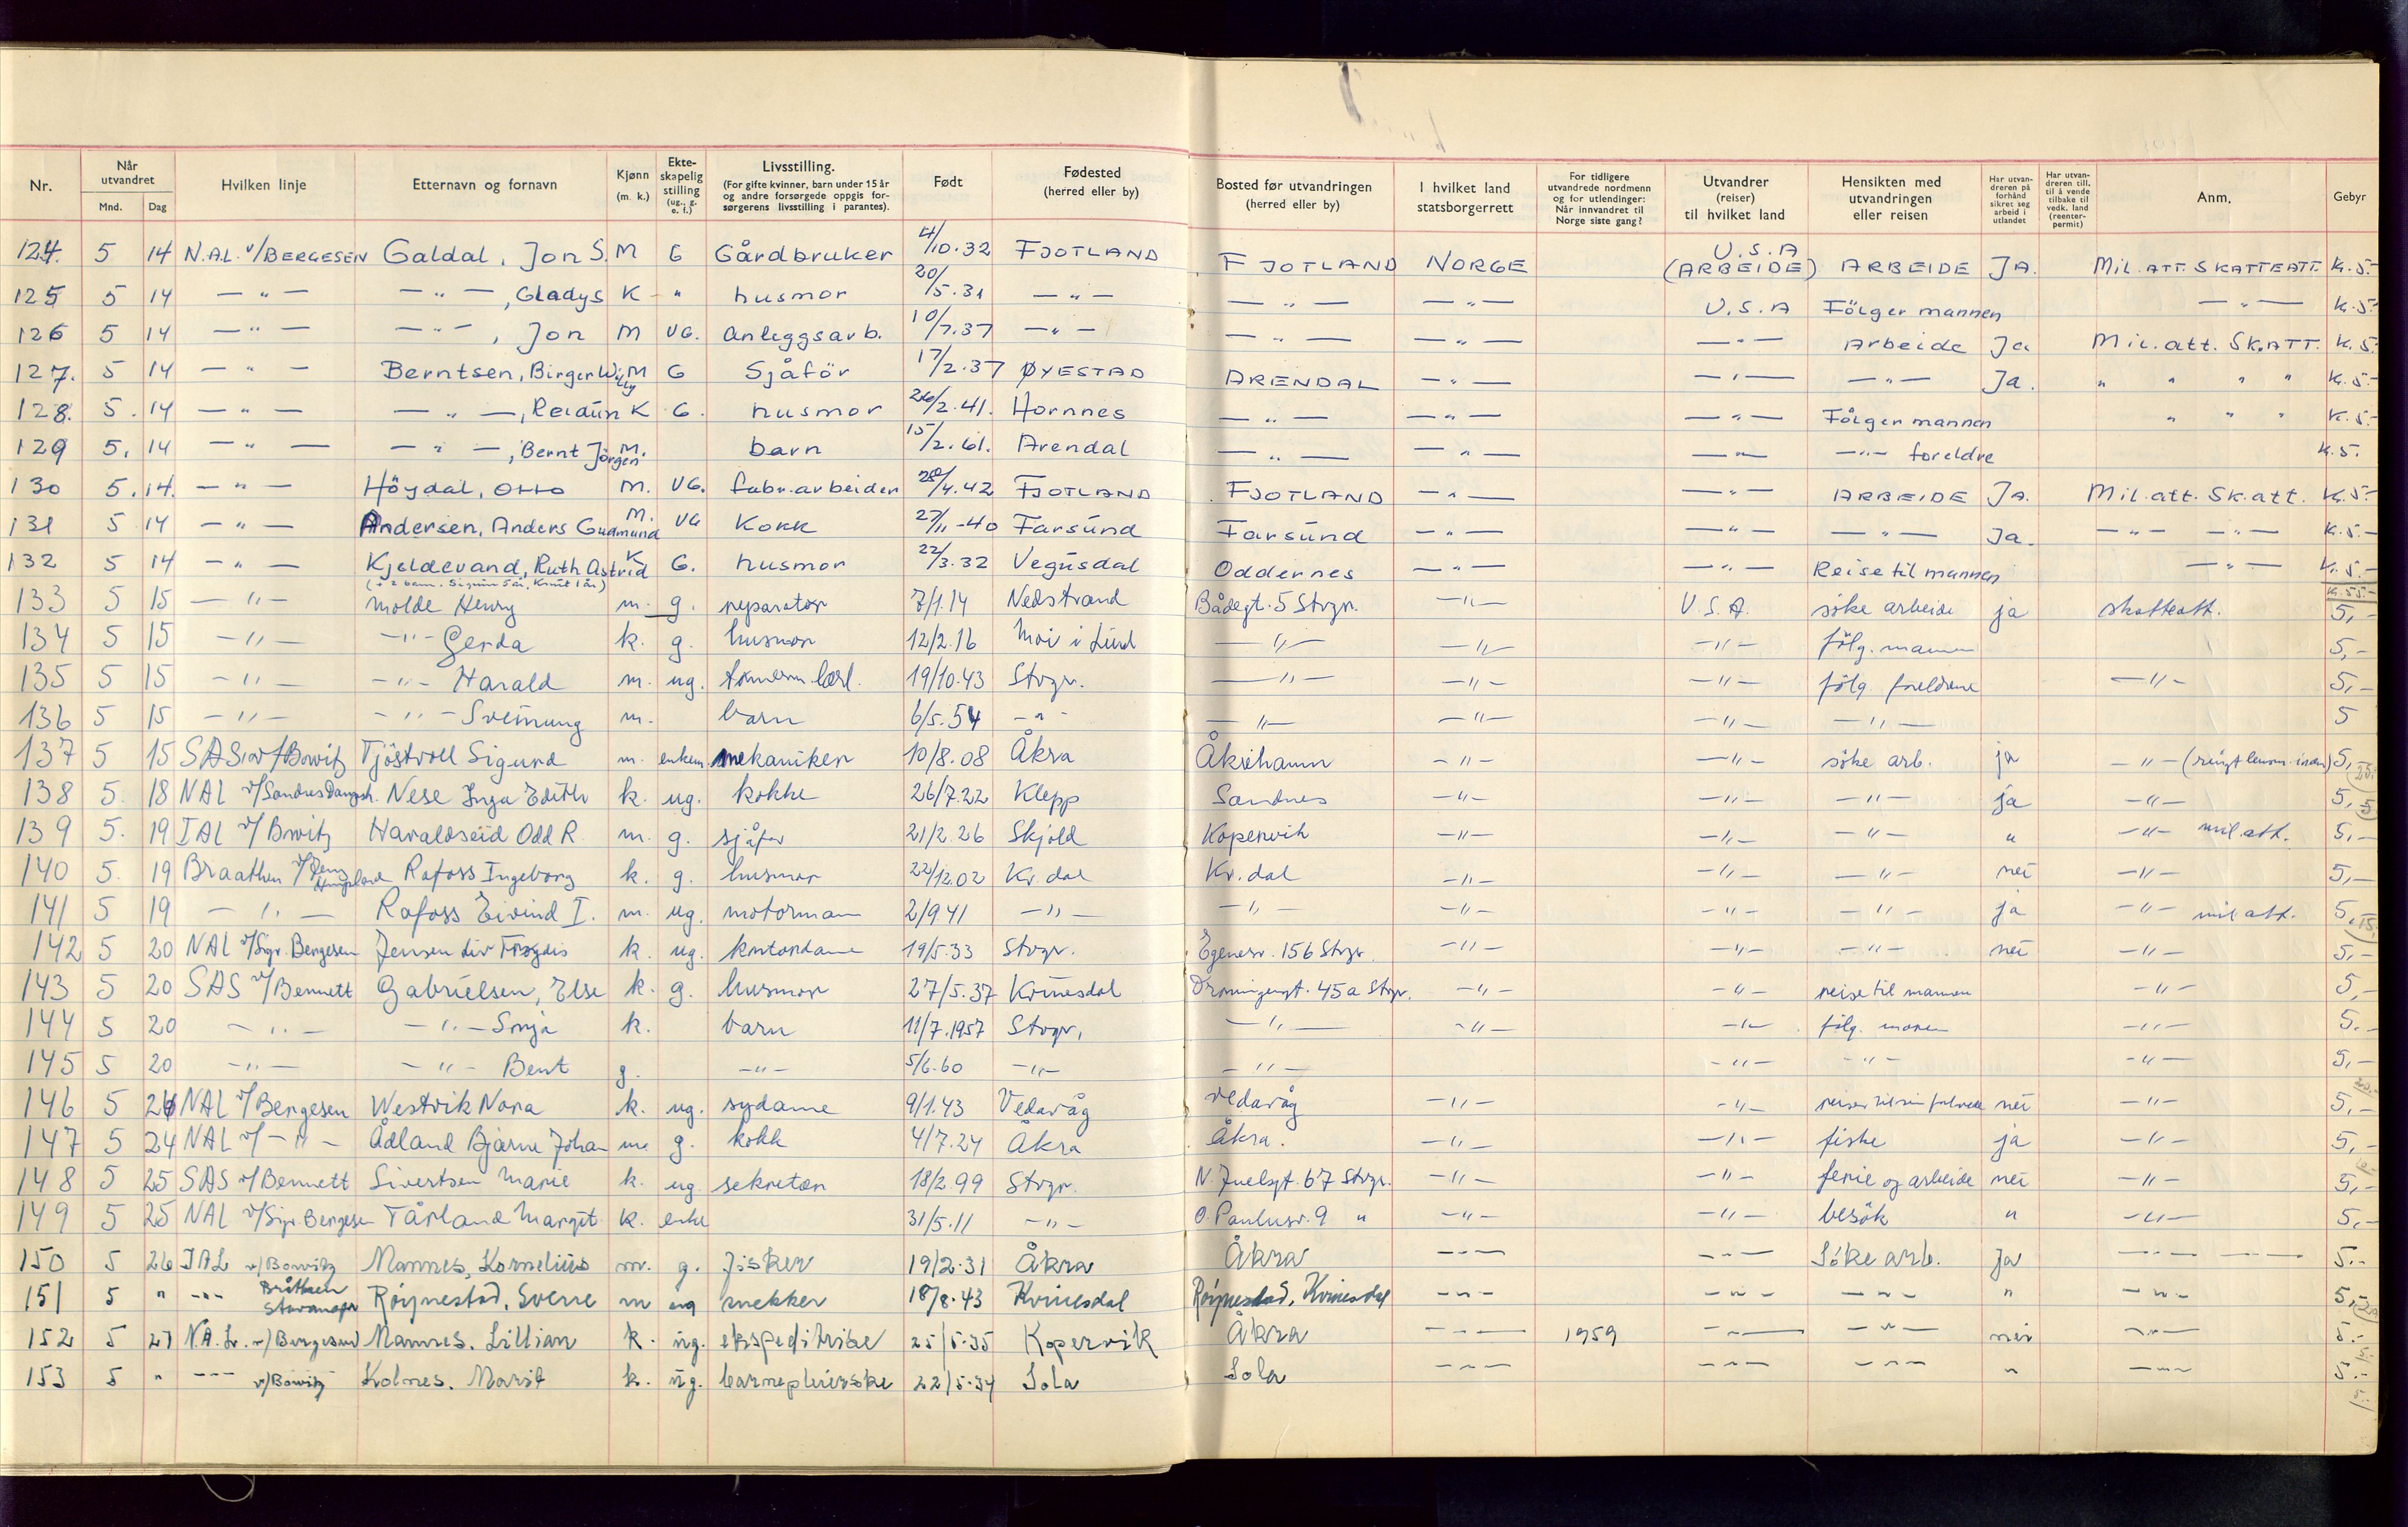 Nr. | Når utvandret Mnd. Dag | Hvilken linje | Etternavn og fornavn | Kjønn (m. k.) | Ekteskapelig stilling (ug., g. e. f.) | Livsstilling. (For gifte kvinner, barn under 15 år og andre forsørgede oppgis forsørgerens livsstilling i parantes). | Født | Fødested (herred eller by) | Bosted før utvandringen (herred eller by) | I hvilket land statsborgerrett | For tidligere utvandrede nordmenn og for utlendinger: Når innvandret til Norge siste gang? | Utvandrer (reiser) til hvilket land | Hensikten med utvandringen eller reisen | Har utvandreren på forhånd sikret seg arbeid i utlandet | Har utvandreren till. til å vende tilbake til vedk. land (reenterpermit) | Anm. | Gebyr
124. 5 14 N.A.L. v/BERGESEN Galdal, Jon S. M G Gårdbruker 4/10.32 FJOTLAND FJOTLAND NORGE U.S.A (ARBEIDE) ARBEIDE JA. MIL.ATT. SKATTEATT. K.5.-
125 5 14 —"— —"—, Gladys K " husmor 20/5.31 —"— —"— —"— U.S.A Fölger mannen —"— K.5.-
126 5 14 —"— —"—, Jon M UG. anleggsarb. 10/7.37 —"— —"— —"— —"— Arbeide Ja Mil.att. SK.ATT. K.5.
127. 5 14 —"— Berntsen, Birger Willy M G Sjåför 17/2.37 ØYESTAD ARENDAL —"— —"— —"— Ja. " " " " K.5.-
128. 5. 14 —"— —"—, Reidun K G. husmor 26/2.41. Hornnes —"— —"— —"— Fölger mannen " " " K.5.-
129 5. 14 —"— —"—, Bernt Jörgen M. barn 15/2.61. Arendal —"— —"— —"— —"— foreldre K.5.
130 5. 14. —"— Höydal, Otto M. UG. fabr.arbeider 28/4.42 FJOTLAND FJOTLAND —"— —"— ARBEIDE JA. Mil.att. Sk.att. K.5.-
131 5 14 —"— Andersen, Anders Gudmund M. UG Kokk 27/11-40 Farsund Farsund —"— —"— —"— Ja. —"— —"— K.5.-
132 5 14 —"— Kjeldevand, Ruth Astrid K G. husmor 22/3.32 Vegusdal Oddernes —"— —"— Reise til mannen —"— K.5.-
(+ 2 barn. Sigrun 5 år, Knut 1 år) K.55.-
133 5 15 —"— Molde Henry m. g. reparatör 7/1.14 Nedstrand Bådegt. 5 Stvgr. —"— U.S.A. söke arbeide ja skatteatt. 5,-
134 5 15 —"— —"— Gerda k. g. husmor 12/2.16 Moi i Lund —"— —"— —"— fölg. mannen 5,-
135 5 15 —"— —"— Harald m. ug. tömrerm. lærl. 19/10.43 Stvgr. —"— —"— —"— fölg. foreldrene —"— 5,-
136 5 15 —"— —"— Sveinung m. barn 6/5.54 —"— —"— —"— —"— —"— 5
137 5 15 SAS v/Bowitz Tjöstvoll Sigurd m. enkem. mekaniker 10/8.08 Åkra Åkrehamn —"— —"— söke arb. ja —"— 5,-
138 5. 18 NAL v/Sandnes Dampsk. Nese Inga Edith k. ug. kokke 26/7.22 Klepp Sandnes —"— —"— —"— ja —"— 5,-
139 5. 19 IAL v/Bowitz Haraldseid Odd R. m. g. sjåför 21/2.26 Skjold Kopervik —"— —"— —"— " —"— mil.att. 5,-
140 5. 19 Braathen v/Jens Haugland Rafoss Ingeborg k. g. husmor 22/12.02 Kv.dal Kv.dal —"— —"— —"— nei —"— 5,-
141 5 19 —"— Rafoss Eivind I. m. ug. motormann 2/9 41 —"— —"— —"— —"— —"— ja —"— mil att. 5,-
142 5 20 NAL v/Sigv. Bergesen Jensen Liv Frøydis k. ug. kontordame 19/5.33 Stvgr. Egenesv. 156 Stvgr. —"— —"— —"— nei —"— 5,-
143 5 20 SAS v/Bennett Gabrielsen, Else k. g. husmor 27/5.37 Kvinesdal Dronningensgt. 45a Stvgr. —"— —"— reise til mannen —"— 5,-
144 5 20 —"— —"— Sonja k. barn 11/7.1957 Stvgr. —"— —"— —"— fölg. moren —"— 5.-
145 5 20 —"— —"— Bent g. —"— 5/6.60 —"— —"— —"— —"— —"— 5,-
146 5 24 NAL v/Bergesen Westvik Nora k. ug. sydame 9/1.43 Vedavåg Vedavåg —"— —"— reiser til sin forlovede nei —"— 5,-
147 5 24 NAL v/—"— Ådland Bjarne Johan m. g. kokk 4/7.24 Åkra Åkra. —"— —"— fiske ja —"— 5,-
148 5 25 SAS v/Bennett Sivertsen Marie k. ug. sekretær 18/2.99 Stvgr. N. Juelsgt. 67 Stvgr. —"— —"— ferie og arbeide nei —"— 5,-
149 5 25 NAL v/Sigv. Bergesen Tårland Margit k. enke 31/5.11 —"— O. Paulusv. 9 " —"— —"— besök " —"— 5,-
150 5 26 IAL v/Bowitz Mannes, Kornelius m. g. fisker 19/2.31 Åkra Åkra —"— —"— Söke arb. Ja —"— —"— 5.-
151 5 " —"— Stavanger Röynestad, Sverre m ug snekker 18/8.43 Kvinesdal Röynestad, Kvinesdal —"— —"— —"— " —"— 5,-
152 5 27 N.A.L. v/Bergesen Mannes, Lillian k. ug. ekspeditrise 25/5.35 Kopervik Åkra —"— 1959 —"— —"— nei —"— 5.-
153 5 " —"— v/Bowitz Kolnes, Marit k. ug. barnepleierske 22/5.34 Sola Sola —"— —"— —"— " —"— 5.-